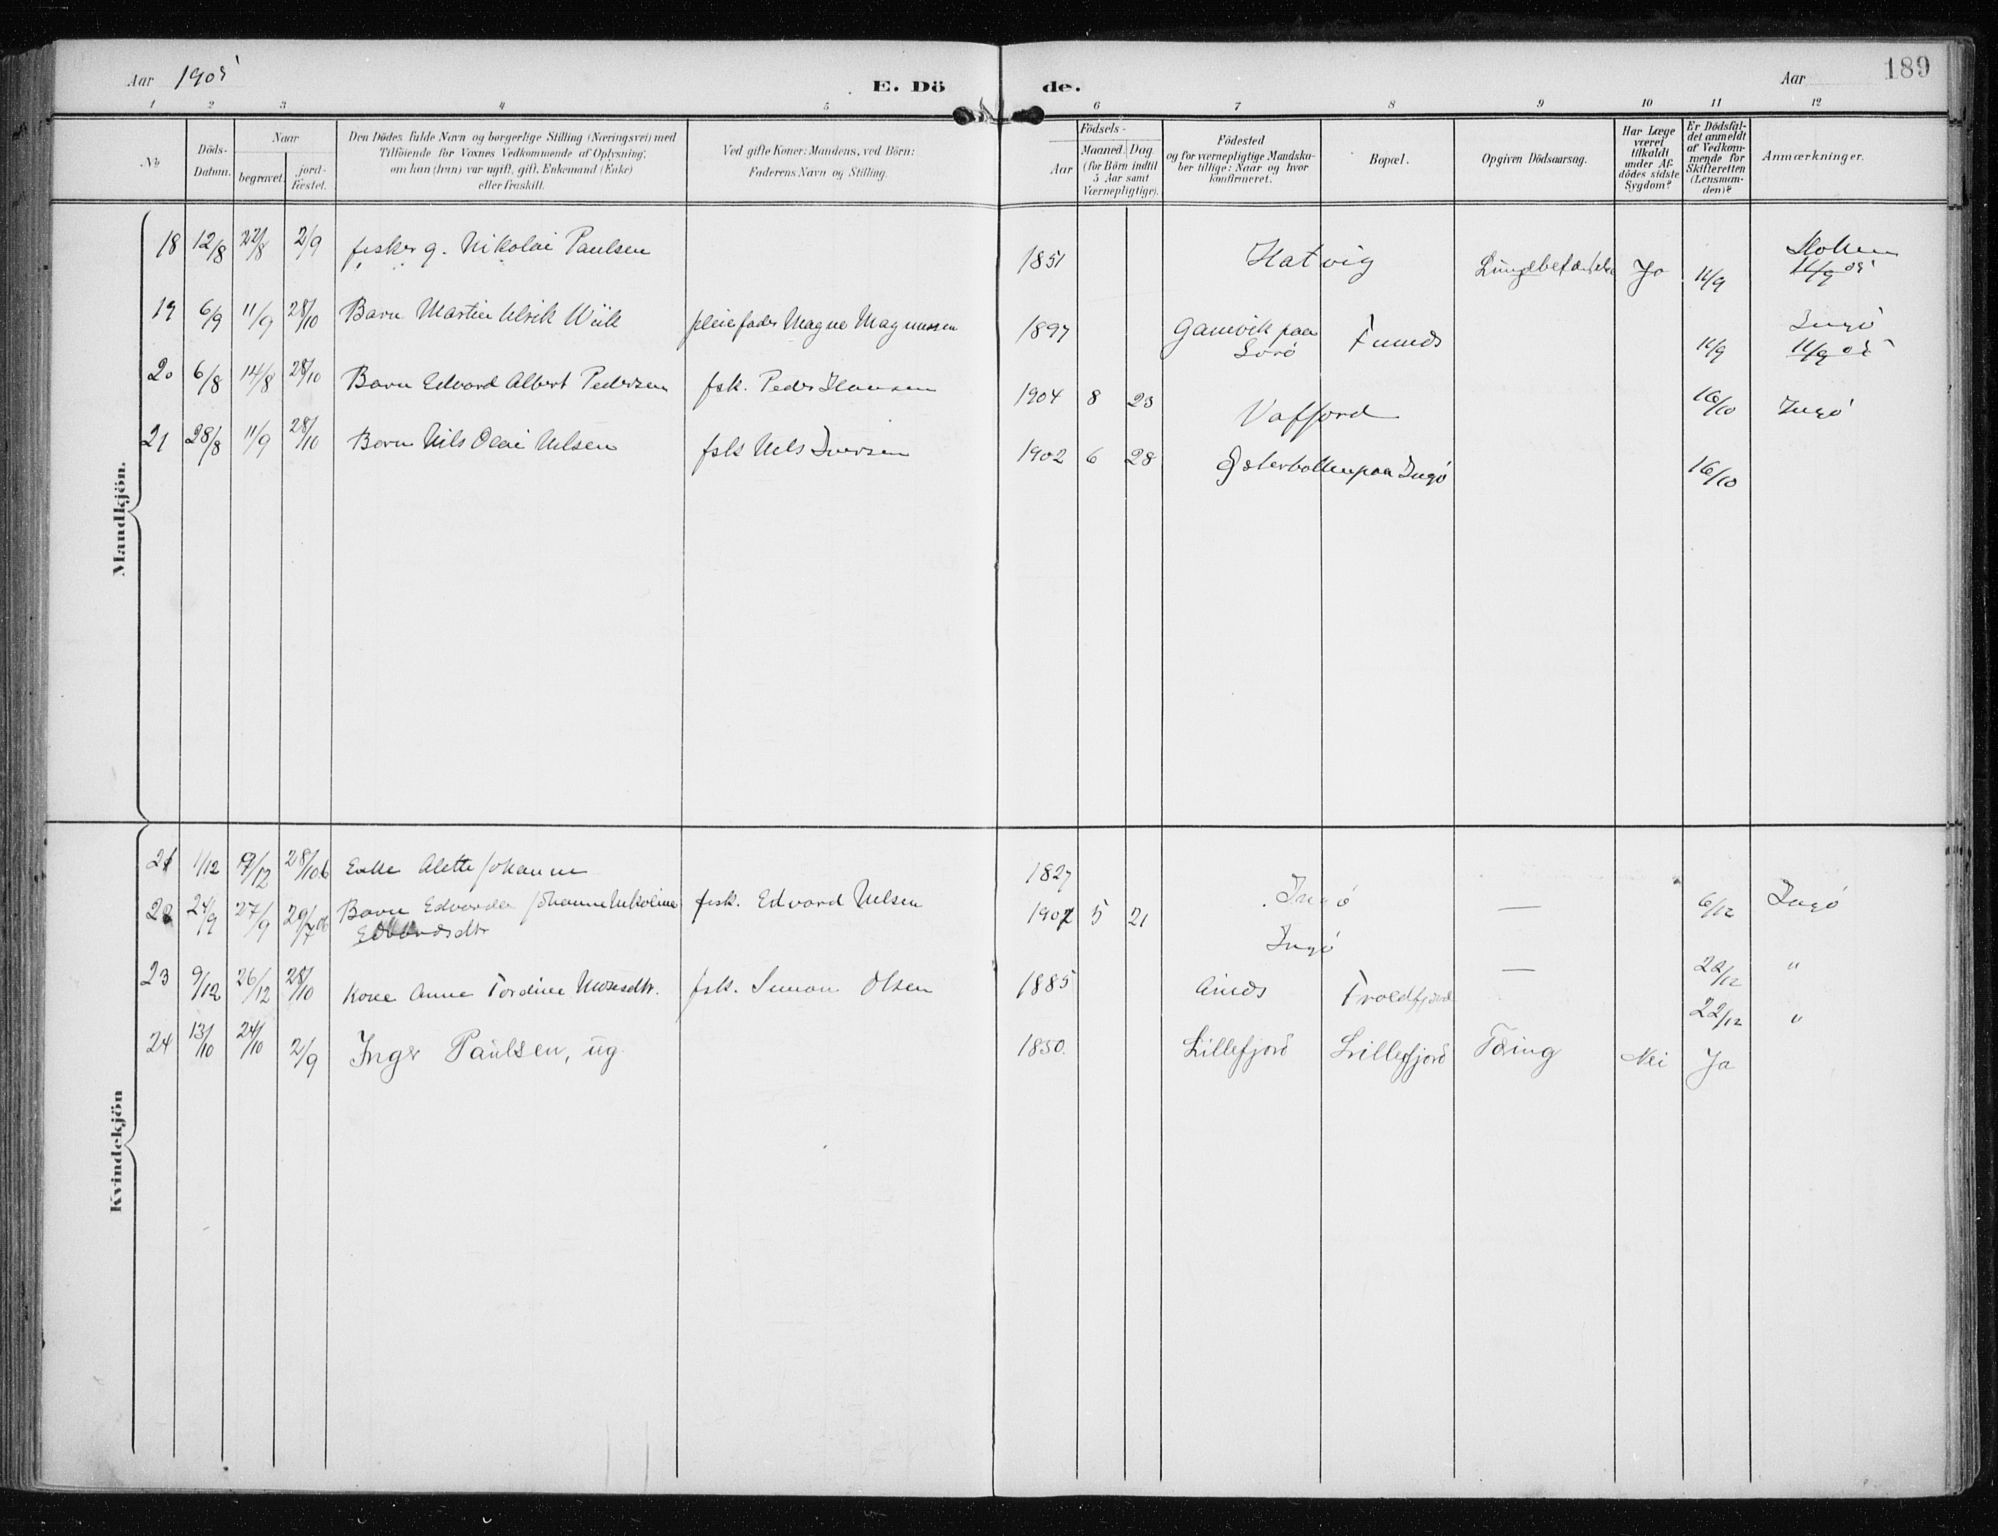 Aar 1905
E. Döde.
Aar
189
1 2 3 4 5 6 7 8 9 10 11 12
No
Döds-Datum.
Naar
begravet.
jord-fæstet.
Den Dödes fulde Navn og borgerlige Stilling (Næringsvei) med
Tilföiende for Voxnes Vedkommende af Oplysning,
om han (hun) var ugift, gift, Enkemand (Enke)
eller fraskilt.
Ved gifte Koner: Mandens, ved Börn:
Faderens Navn og Stilling.
Födsels-
Aar
Maaned. Dag
(for Börn indtil
5 Aar samt
Værnepligtige).
Födested
og for værnepligtige Mandska-
ber tillige: Naar og hvor
konfirmeret.
Bopæl.
Opgiven Dödsaarsag.
Har Læge
været
tilkaldt
under Af-
dödes sidste
Sygdom?
Er Dödsfal-
det anmeldt
af Vedkom-
mende for
Skifteretten
(Lensman-
den)?
Anmærkninger.
Mandkjön.
18 12/8 22/8 2/9 fisker g. Nikolai Paulsen 1851 Hatvig Ja 11/9
11/9 05
19 6/9 11/9 28/10 Barn Martin Ulrik Wiik pleiefader Magne Magnussen 1897 Gamvik paa
Sørø 11/9 Ingö
11/9 05
20 6/8 14/8 28/10 Barn Edvard Albert Pedersen fsk. Peder Hansen 1904 8 23 16/10 Ingö
21 28/8 11/9 28/10 Barn Nils Olai Nilsen fsk Nils Iversen 1902 6 28 paa Ingö 16/10
Kvindekjön
21 1/12 9/12 28/10 06 Enke Alette Johanne 1827 Ingö 6/12 Ingö
22 24/9 27/9 29/7 06 Barn Edvarda Johanne Nikoline
Edvardsdtr fsk. Edvard Nilsen 1902 5 21 — Ingö 22/12 "
23 9/12 26/12 28/10 Kone Anne Tordine Mosesdtr. fsk. Simon Olsen 1885 — Troldfjord 22/12 "
24 13/10 24/10 2/9 Inger Paulsen, ug. 1850. Lillefjord Lillefjord Tæring Nei Ja